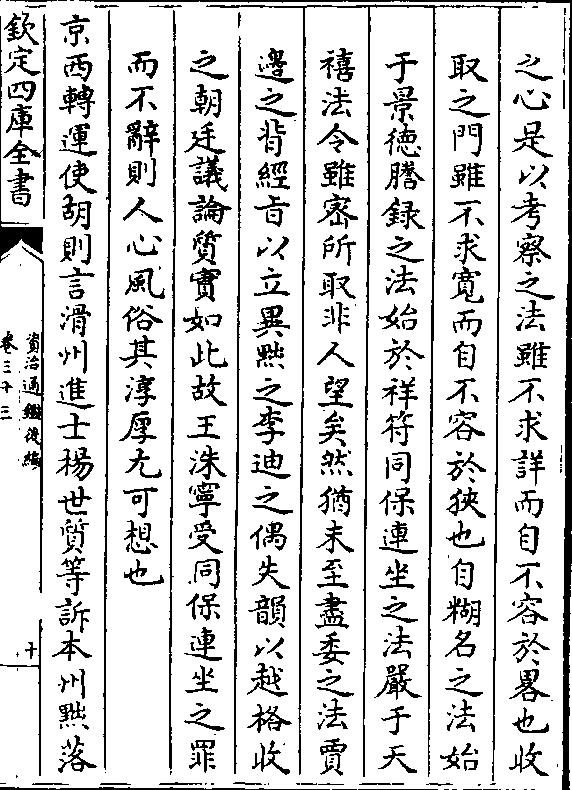 之心是以考察之法雖不求詳而自不容於畧也收
取之門雖不求寛而自不容於狹也自糊名之法始
于景徳謄録之法始於祥符同保連坐之法嚴于天
禧法令雖宻所取非人望矣然猶未至盡委之法賈
邊之背經㫖以立異黙之李迪之偶失韻以越格收
之朝廷議論質實如此故王洙寧受同保連坐之罪
而不辭則人心風俗其淳厚尤可想也
京西轉運使胡則言滑州進士楊世質等訴本州黙落
欽定四庫全書
資治通鑑後編
卷三十三
十